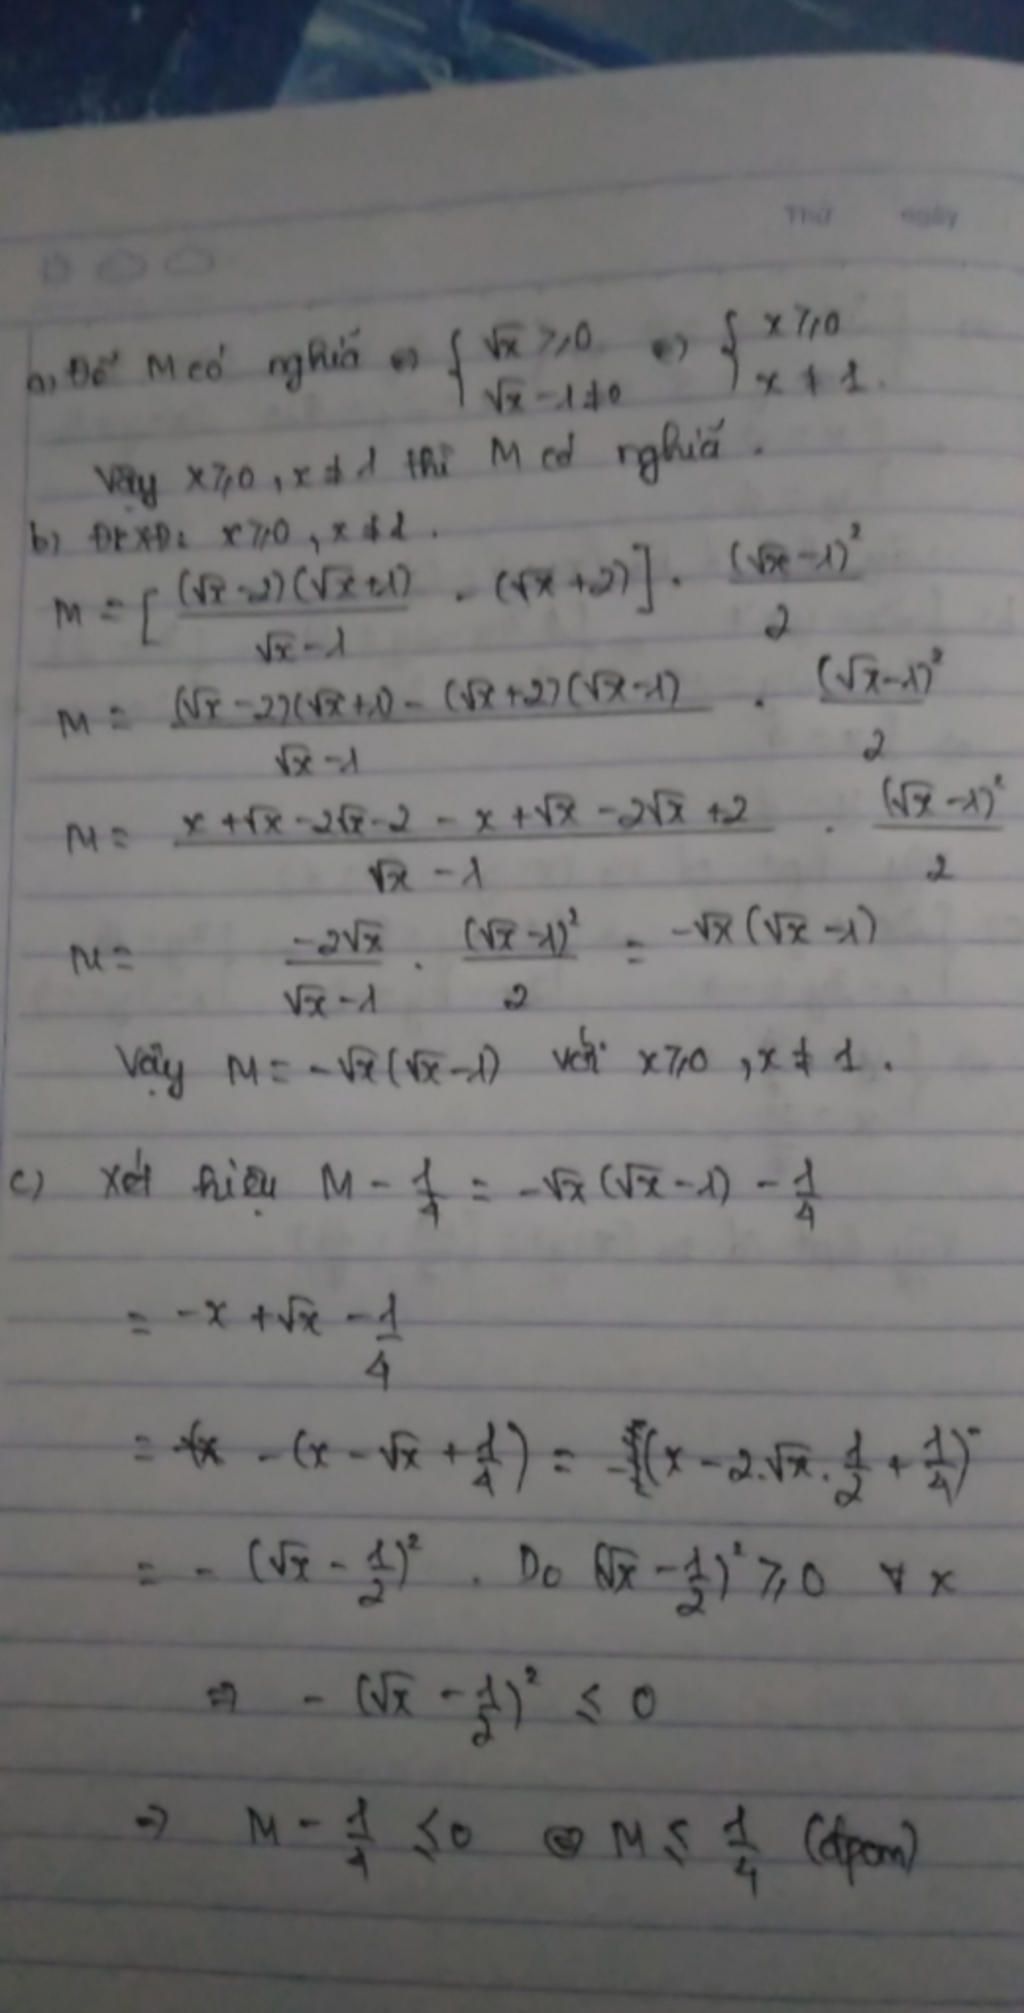 Thứ ngày
a) Để M có nghĩa ⇔ { √x ≥ 0 ; √x - 1 ≠ 0 ⇔ { x ≥ 0 ; x ≠ 1.
Vậy x ≥ 0, x ≠ 1 thì M có nghĩa.
b) ĐKXĐ: x ≥ 0, x ≠ 1.
M = [ (√x - 2)(√x + 1) / (√x - 1) - (√x + 2) ] . (√x - 1)² / 2
M = ((√x - 2)(√x + 1) - (√x + 2)(√x - 1)) / (√x - 1) . (√x - 1)² / 2
M = (x + √x - 2√x - 2 - x + √x - 2√x + 2) / (√x - 1) . (√x - 1)² / 2
M = -2√x / (√x - 1) . (√x - 1)² / 2 = -√x (√x - 1)
Vậy M = -√x (√x - 1) với x ≥ 0, x ≠ 1.
c) Xét hiệu M - 1/4 = -√x (√x - 1) - 1/4
= -x + √x - 1/4
= - (x - √x + 1/4) = - (x - 2.√x . 1/2 + 1/4)
= - (√x - 1/2)² . Do (√x - 1/2)² ≥ 0 ∀ x
⇒ - (√x - 1/2)² ≤ 0
⇒ M - 1/4 ≤ 0 ⇔ M ≤ 1/4 (đpcm)